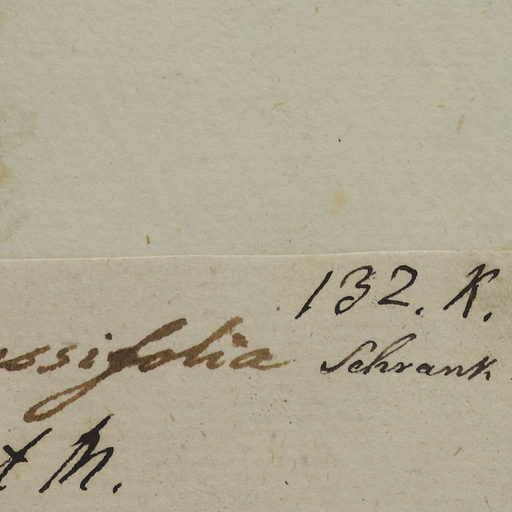 132. K.
ssifolia Schrank
t M.